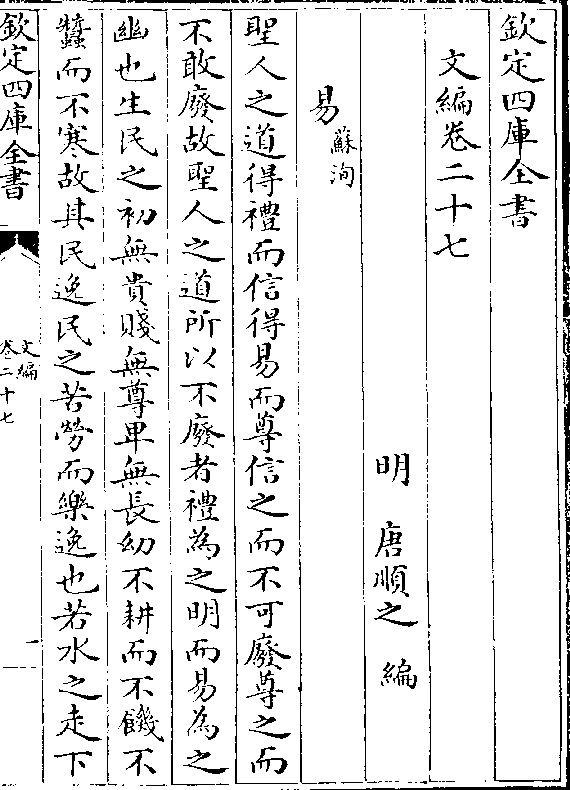 欽定四庫全書
文編卷二十七
明 唐順之 編
易 蘇洵
聖人之道得禮而信得易而尊信之而不可廢尊之而
不敢廢故聖人之道所以不廢者禮為之明而易為之
幽也生民之初無貴賤無尊卑無長幼不耕而不饑不
蠶而不寒故其民逸民之苦勞而樂逸也若水之走下
欽定四庫全書
文編
卷二十七
一